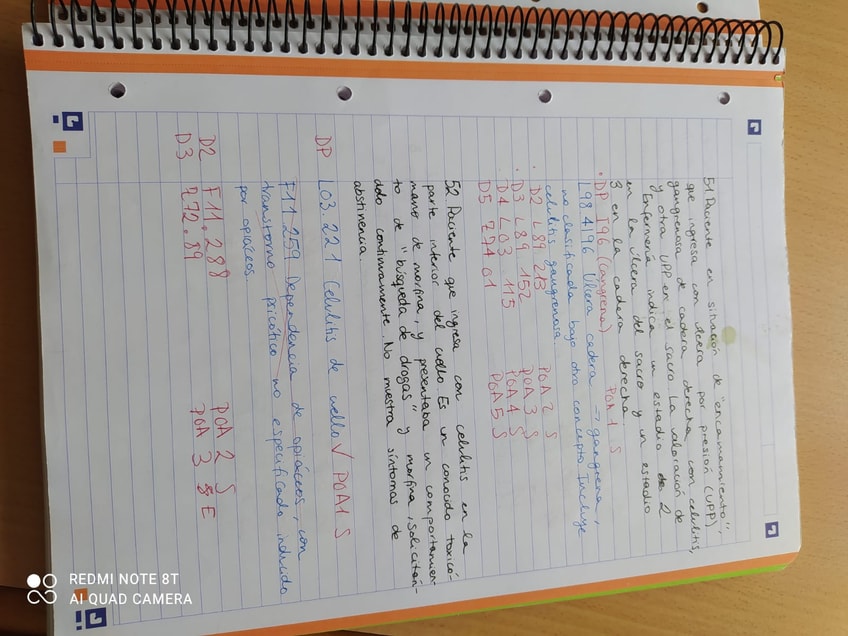 51 Paciente en situación de "encamamiento",
que ingresa con úlcera por presión (UPP)
gangrenosa de cadera derecha, con celulitis,
y otra UPP en el sacro. La valoración de
Enfermería indica un estadio de 2
en la úlcera del sacro y un estadio
3 en la cadera derecha.
· DP I96 (Gangrena) POA 1 S
L98.4196 Úlcera cadera → gangrena,
no clasificada bajo otro concepto. Incluye
celulitis gangrenosa
· D2 L89 213 POA 2 S
· D3 L89 152 POA 3 S
· D4 L03 115 POA 4 S
D5 Z74 01 POA 5 S
52 Paciente que ingresa con celulitis en la
parte interior del cuello. Es un conocido toxicó-
mano de morfina, y presentaba un comportamien-
to de "búsqueda de drogas" y morfina, solicitán-
dolo continuamente. No muestra síntomas de
abstinencia.
DP L03.221 Celulitis de cuello √ POA1 S
F11.259 Dependencia de opiáceos, con
transtorno psicótico no especificado inducido
por opiáceos
D2 F11.288 POA 2 S
D3 Z72.89 POA 3 E
REDMI NOTE 8T
AI QUAD CAMERA